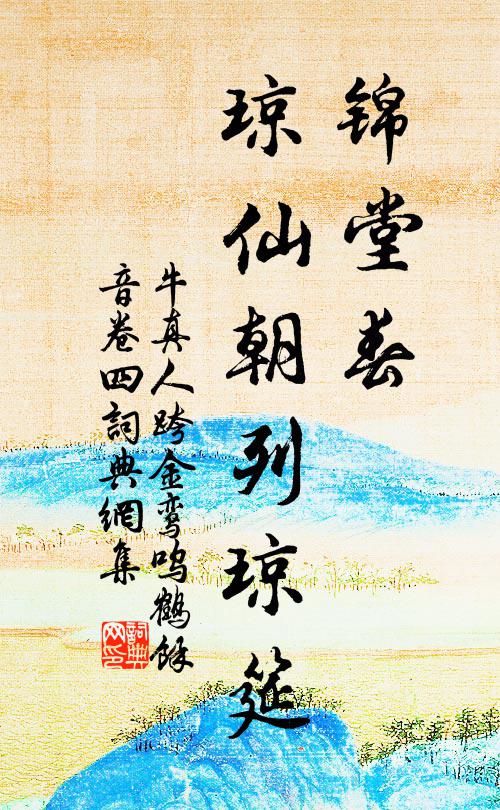 锦堂春
琼仙朝列琼筵
牛真人跨金鸾鸣鹤馀
音卷四詞典網集
詞典
网印